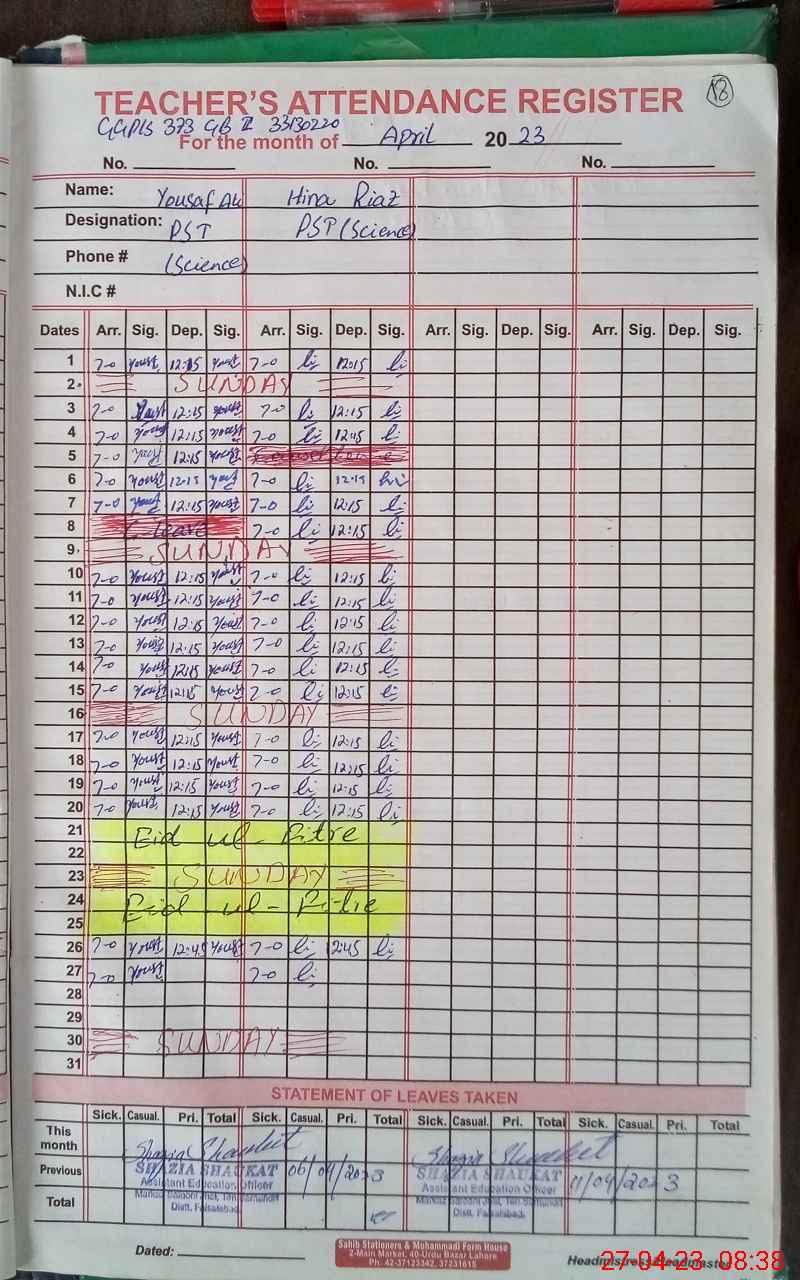 TEACHER'S ATTENDANCE REGISTER
18
GGPLS 373 GB II 33130220
For the month of April 2023
No. No. No.
Name: Yousaf Ali Hina Riaz
Designation: PST PST (Science)
Phone # (Science)
N.I.C #
Dates Arr. Sig. Dep. Sig. Arr. Sig. Dep. Sig. Arr. Sig. Dep. Sig. Arr. Sig. Dep. Sig.
1 7-0 Yousf 12:15 Yousf 7-0 12:15
2. SUNDAY
3 7-0 Yousf 12:15 Yousf 7-0 12:15
4 7-0 Yousf 12:15 Yousf 7-0 12:45
5 7-0 Yousf 12:15 Yousf
6 7-0 Yousf 12:15 Yousf 7-0 12:15
7 7-0 Yousf 12:15 Yousf 7-0 12:15
8 C leave 7-0 12:15
9. SUNDAY
10 7-0 Yousf 12:15 Yousf 7-0 12:15
11 7-0 Yousf 12:15 Yousf 7-0 12:15
12 7-0 Yousf 12:15 Yousf 7-0 12:15
13 7-0 Yousf 12:15 Yousf 7-0 12:15
14 7-0 Yousf 12:15 Yousf 7-0 12:15
15 7-0 Yousf 12:15 Yousf 7-0 12:15
16 SUNDAY
17 7-0 Yousf 12:15 Yousf 7-0 12:15
18 7-0 Yousf 12:15 Yousf 7-0 12:15
19 7-0 Yousf 12:15 Yousf 7-0 12:15
20 7-0 Yousf 12:15 Yousf 7-0 12:15
21 Eid ul-Fitre
22
23 SUNDAY
24 Eid-ul-Fitre
25
26 7-0 Yousf 12:45 Yousf 7-0 12:45
27 7-0 Yousf 7-0
28
29
30 SUNDAY
31
STATEMENT OF LEAVES TAKEN
Sick. Casual. Pri. Total Sick. Casual. Pri. Total Sick. Casual. Pri. Total Sick. Casual. Pri. Total
This month Shazia Shaukat Shazia Shaukat
Previous SHAZIA SHAUKAT 06/04/2023 SHAZIA SHAUKAT 11/04/2023
Assistant Education Officer Assistant Education Officer
Total Distt. Faisalabad. Distt. Faisalabad.
Dated:
Sahib Stationers & Muhammadi Form House
2-Main Market, 40-Urdu Bazar Lahore
Ph: 42-37123342, 37231615
Headmistress/Headmaster
27-04-23 08:38